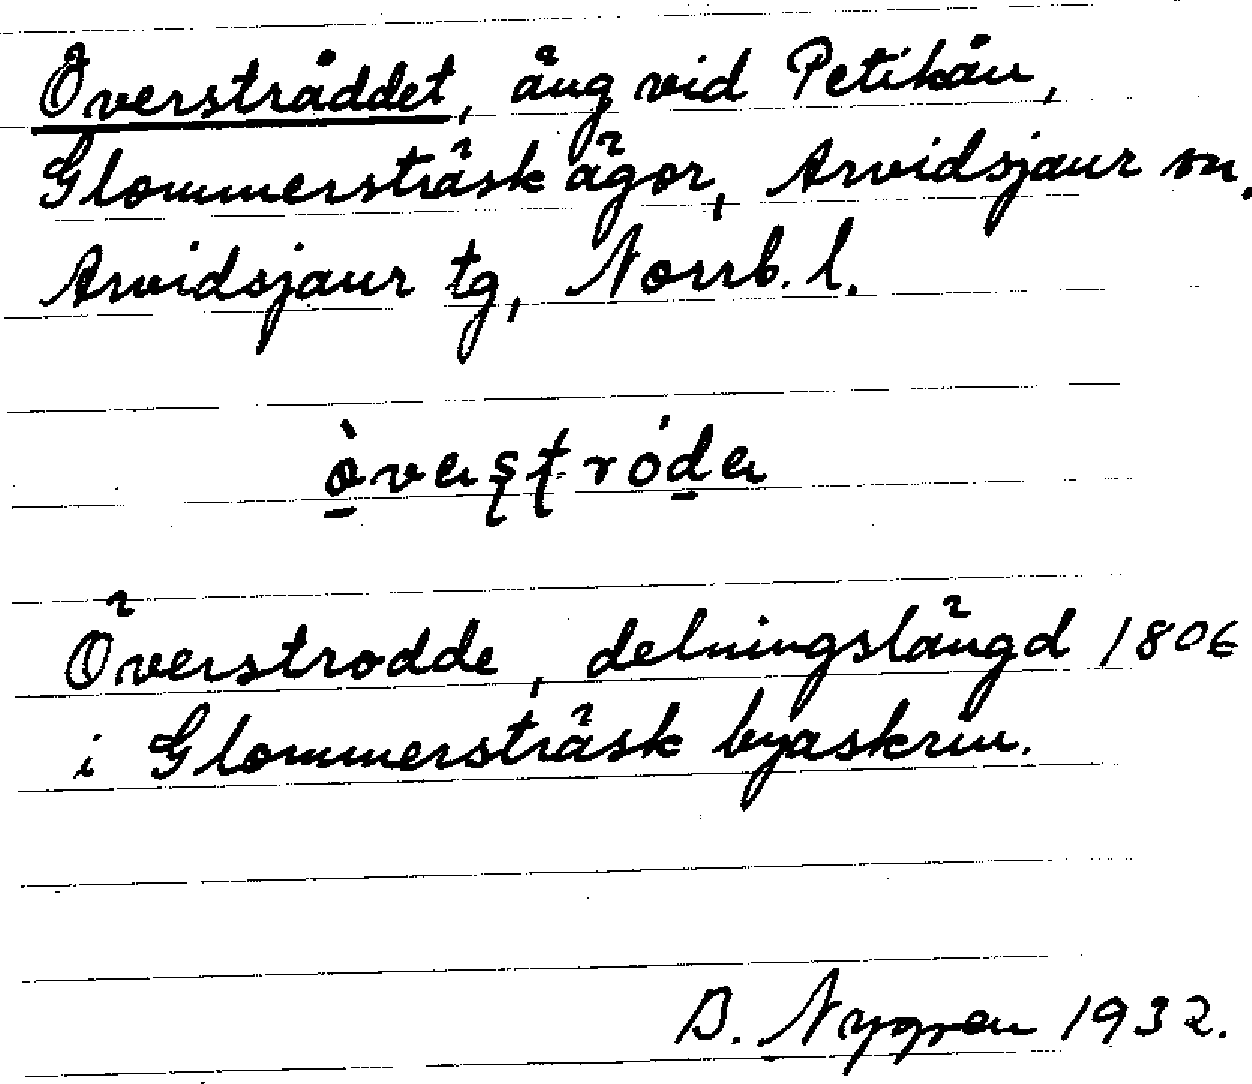 Överstråddet, äng vid Petikån,
Glommersträsk ägor, Arvidsjaur sn,
Arvidsjaur tg, Norrb. l.
Överstrodde, delningslängd 1806
i Glommersträsk byaskrin.
B. Nygren 1932.